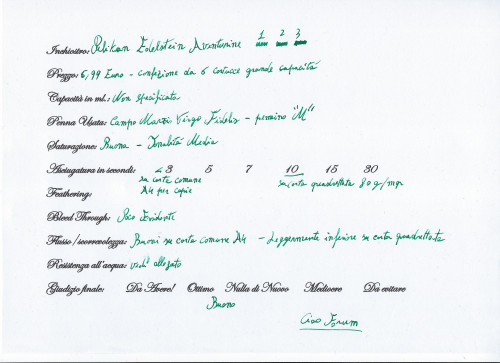 Inchiostro: Pelikan Edelstein Aventurine 1 2 3
Prezzo: 6,99 Euro - confezione da 6 cartucce grande capacità
Capacità in ml.: Non specificata
Penna Usata: Campo Marzio Virgo Fidelis - pennino "M"
Saturazione: Buona - Tonalità Media
Asciugatura in secondi: <3 5 7 10 15 30
su carta comune su carta quadrettata 80 g/mq
A4 per copie
Feathering:
Bleed Through: Poco Evidente
Flusso/scorrevolezza: Buoni su carta comune A4 - Leggermente inferiore su carta quadrettata
Resistenza all'acqua: vedi allegato
Giudizio finale: Da Avere! Ottimo Nulla di Nuovo Mediocre Da evitare
Buono
Ciao Forum